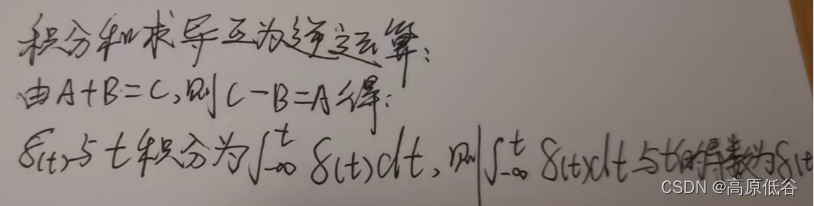 积分和求导互为逆运算:
由A+B=C,则C-B=A得:
δ(t)与t积分为∫_{-∞}^{t} δ(t)dt,则∫_{-∞}^{t} δ(t)dt与t的导数为δ(t
CSDN @高原低谷